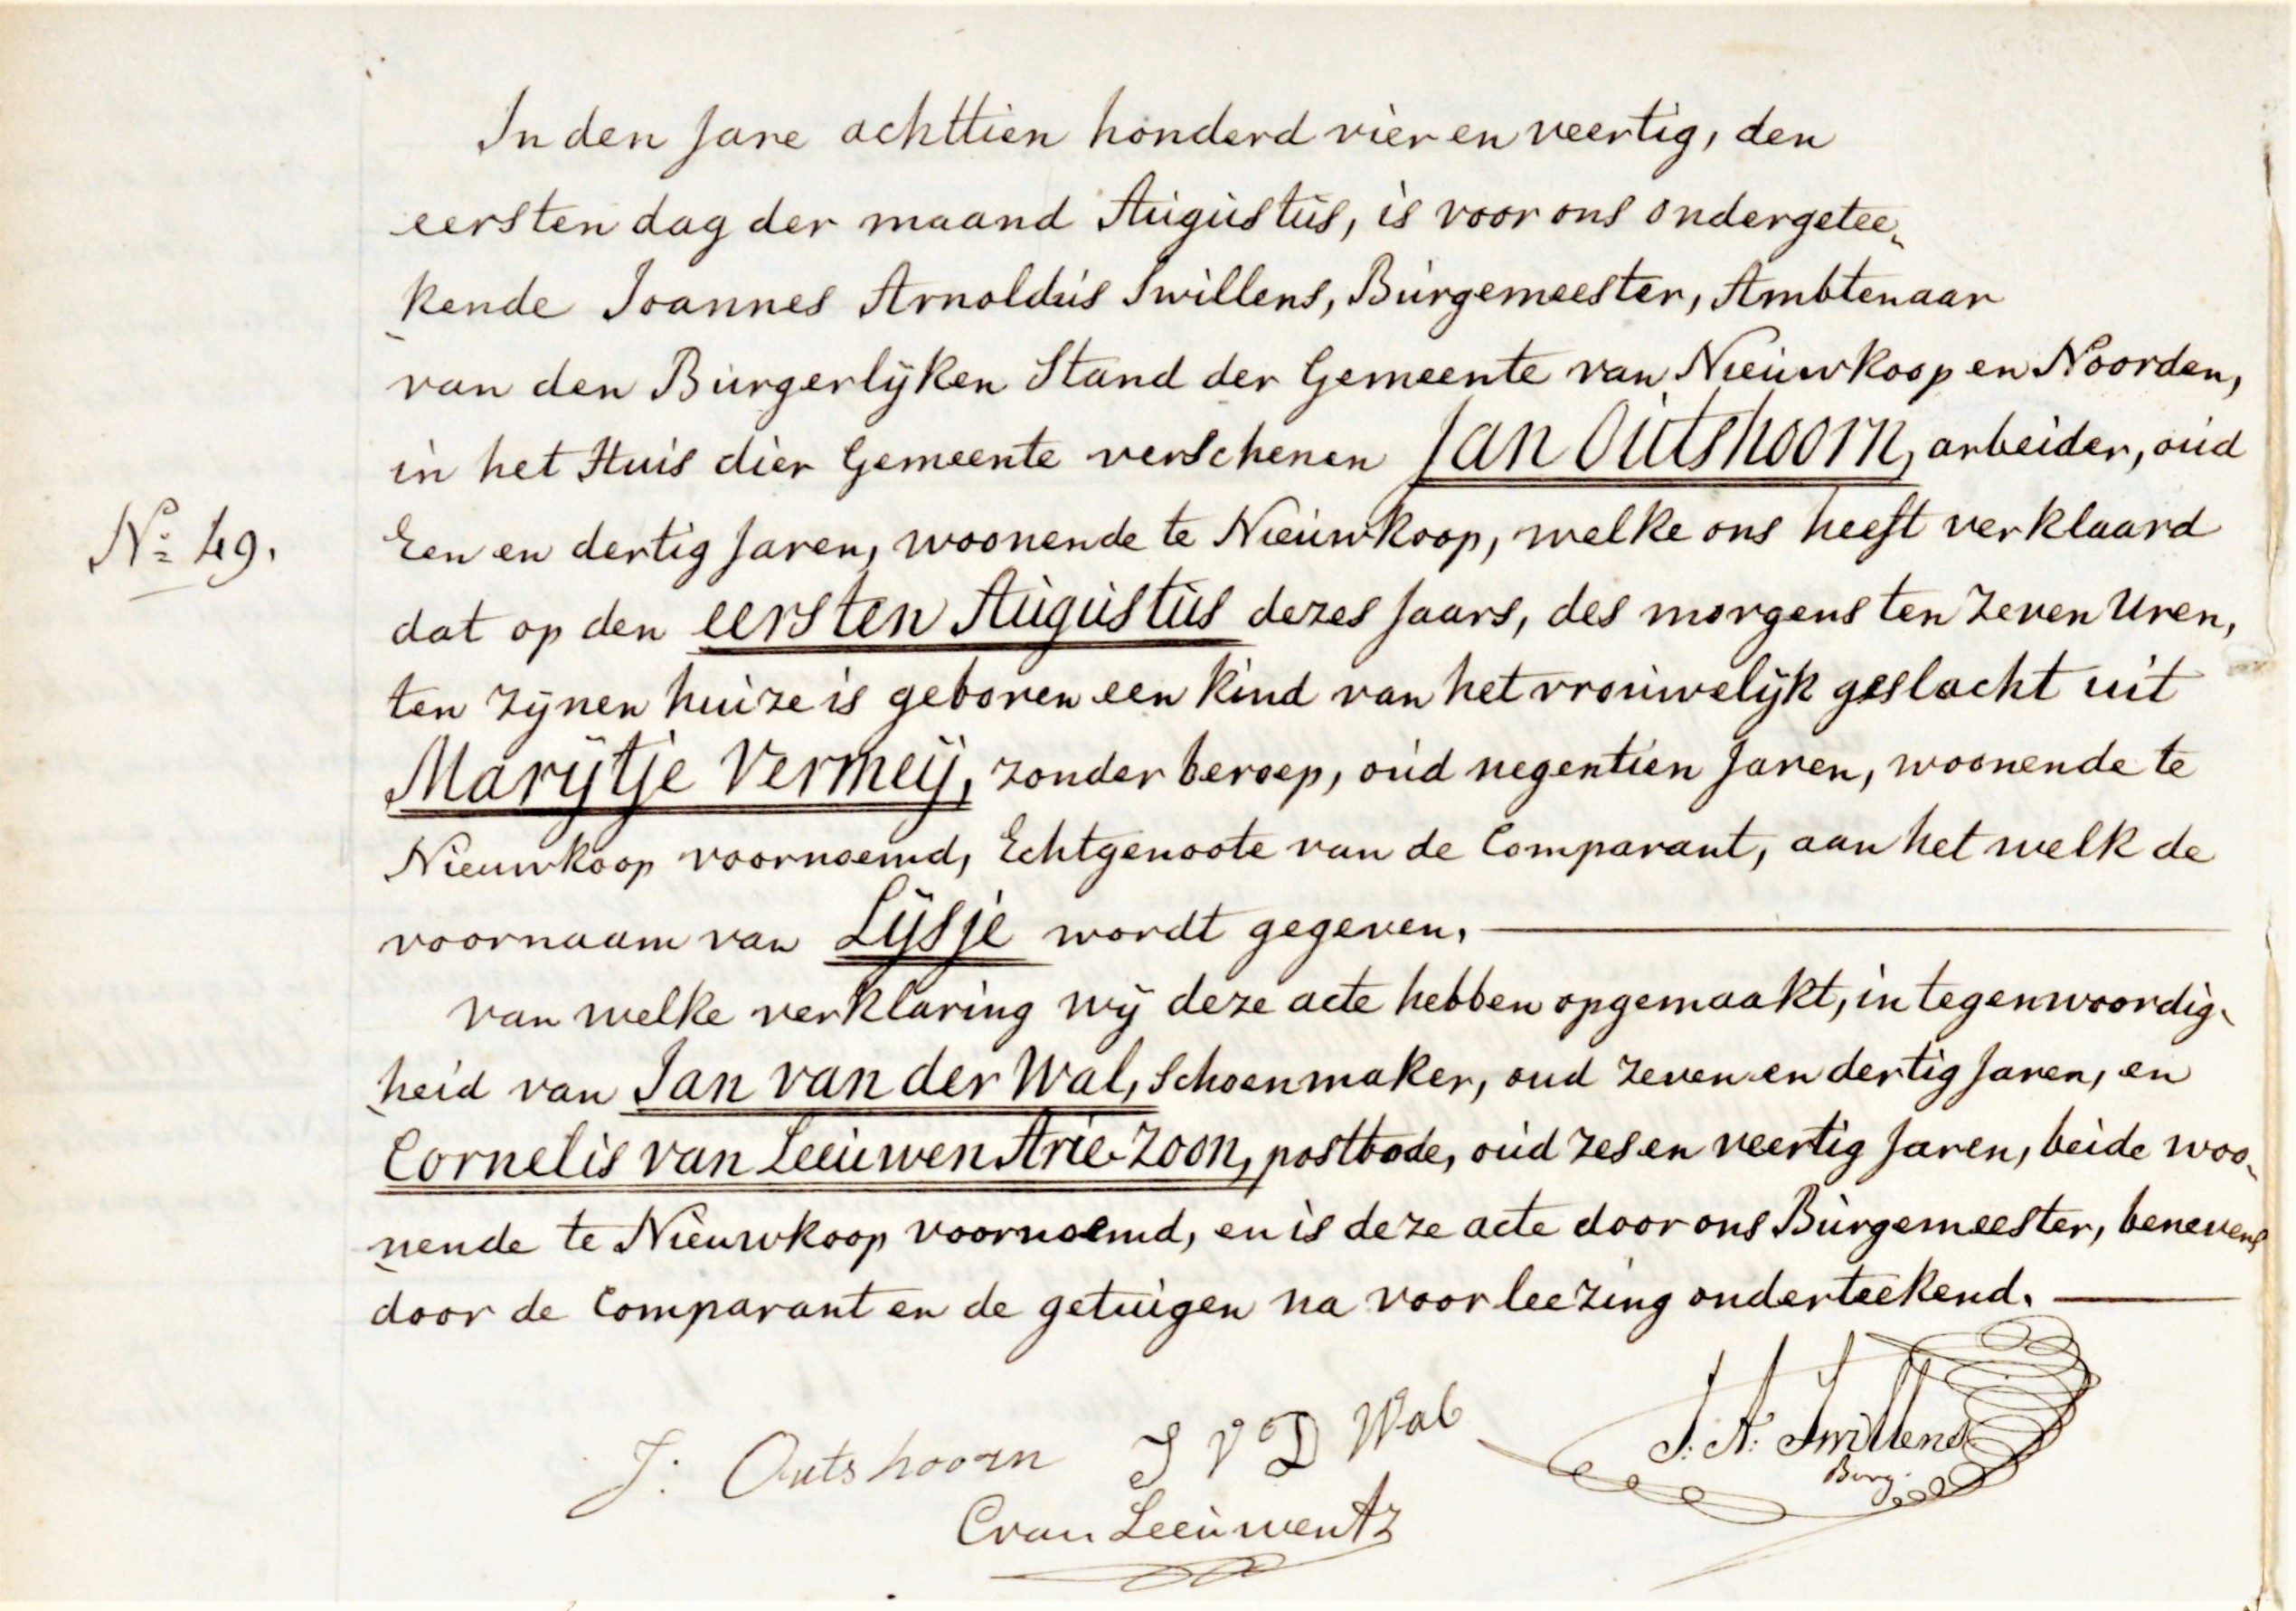 In den Jare achttien honderd vier en veertig, den
eersten dag der maand Augustus, is voor ons ondergetee„
kende Joannes Arnoldus Swillens, Burgemeester, Ambtenaar
van den Burgerlijken Stand der Gemeente van Nieuwkoop en Noorden,
in het Huis dier Gemeente verschenen Jan Outshoorn, arbeider, oud
No 49.
Een en dertig Jaren, woonende te Nieuwkoop, welke ons heeft verklaard
dat op den eersten Augustus dezes Jaars, des morgens ten Zeven Uren,
ten zijnen huize is geboren een kind van het vrouwelijk geslacht uit
Marijtje Vermeij, zonder beroep, oud negentien Jaren, woonende te
Nieuwkoop voornoemd, Echtgenoote van de Comparant, aan het welk de
voornaam van Lijsje wordt gegeven.
van welke verklaring wij deze acte hebben opgemaakt, in tegenwoordig„
heid van Jan van der Wal, Schoenmaker, oud zeven en dertig Jaren, en
Cornelis van Leeuwen Arie-Zoon, postbode, oud zes en veertig Jaren, beide woo„
nende te Nieuwkoop voornoemd, en is deze acte door ons Burgemeester, benevens
door de Comparant en de getuigen na voorleezing onderteekend.
J: Outshoorn J V D Wal J. A: Swillens
Burg.
C van Leeuwen Az